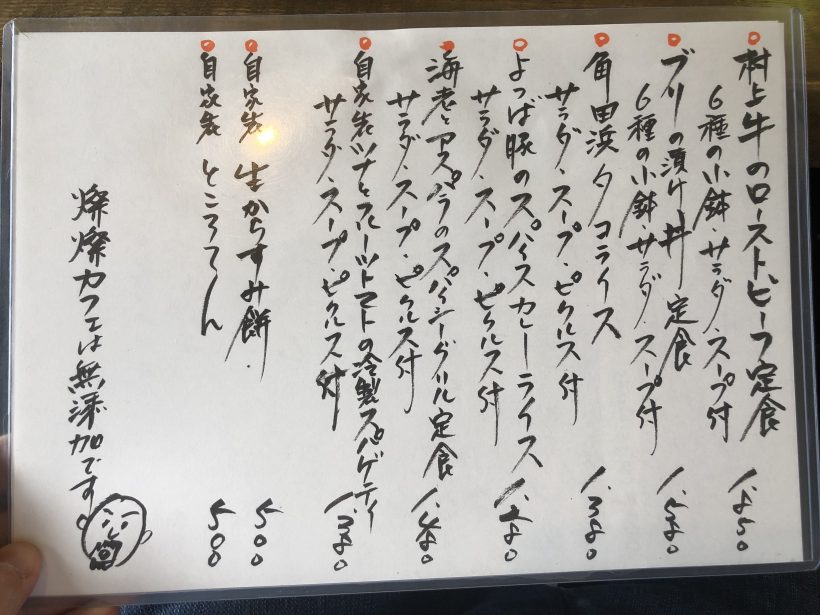 村上牛のローストビーフ定食
6種の小鉢・サラダ・スープ付
ブリの漬け丼定食
6種の小鉢・サラダ・スープ付
角田浜タコライス 1.350
サラダ・スープ・ピクルス付
よつば豚のスパイスカレーライス
サラダ・スープ・ピクルス付
海老とアスパラのスパイシーグリル定食
サラダ・スープ・ピクルス付
自家製ツナとフルーツトマトの冷製スパゲティ 1.350
サラダ・スープ・ピクルス付
自家製 生からすみ餅 500
自家製 ところてん 500
燦燦カフェは無添加です。